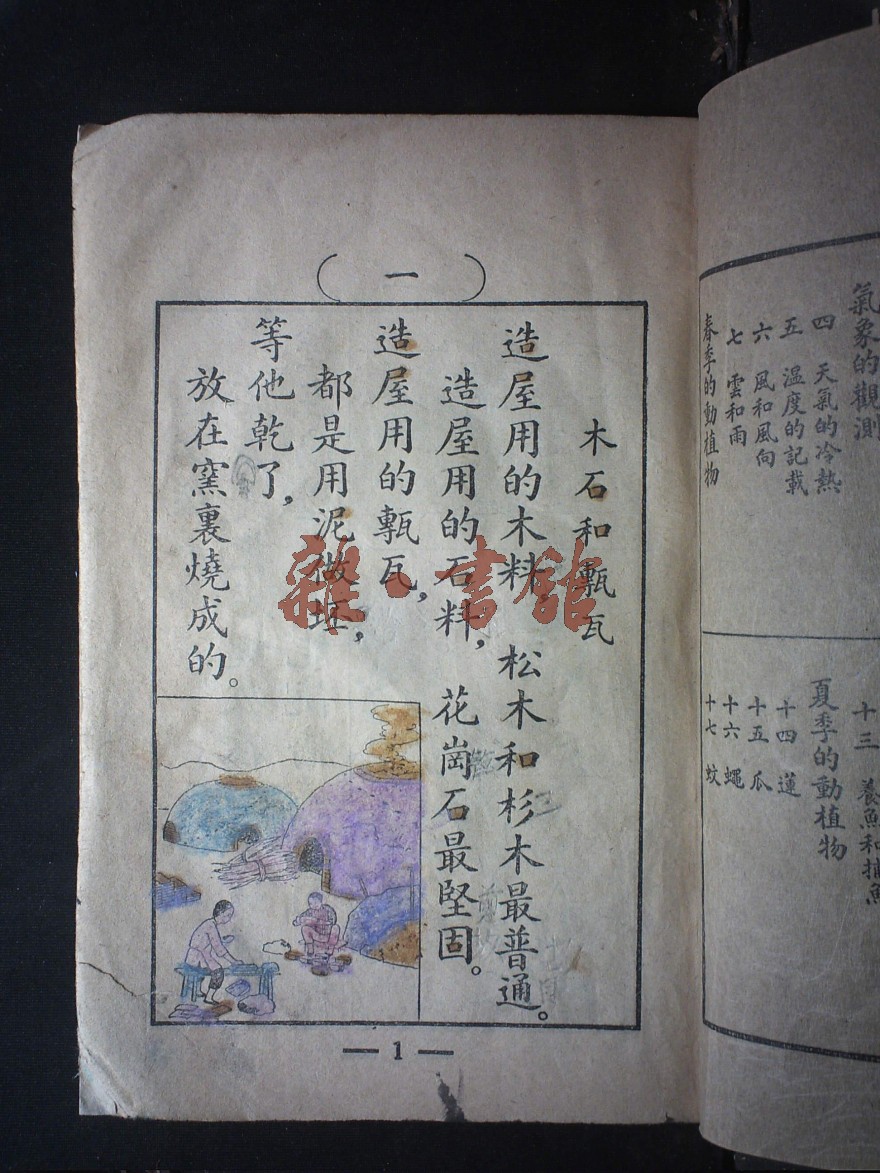 氣象的觀測
四 天氣的冷熱
五 溫度的記載
六 風和風向
七 雲和雨
春季的動植物
十三 養魚和捕魚
夏季的動植物
十四 蓮
十五 瓜
十六 蠅
十七 蚊
(一)
木石和甎瓦
造屋用的木料，松木和杉木最普通。
造屋用的石料，花崗石最堅固。
造屋用的甎瓦，
都是用泥做坯，
等他乾了，
放在窯裏燒成的。
— 1 —
雜·書館